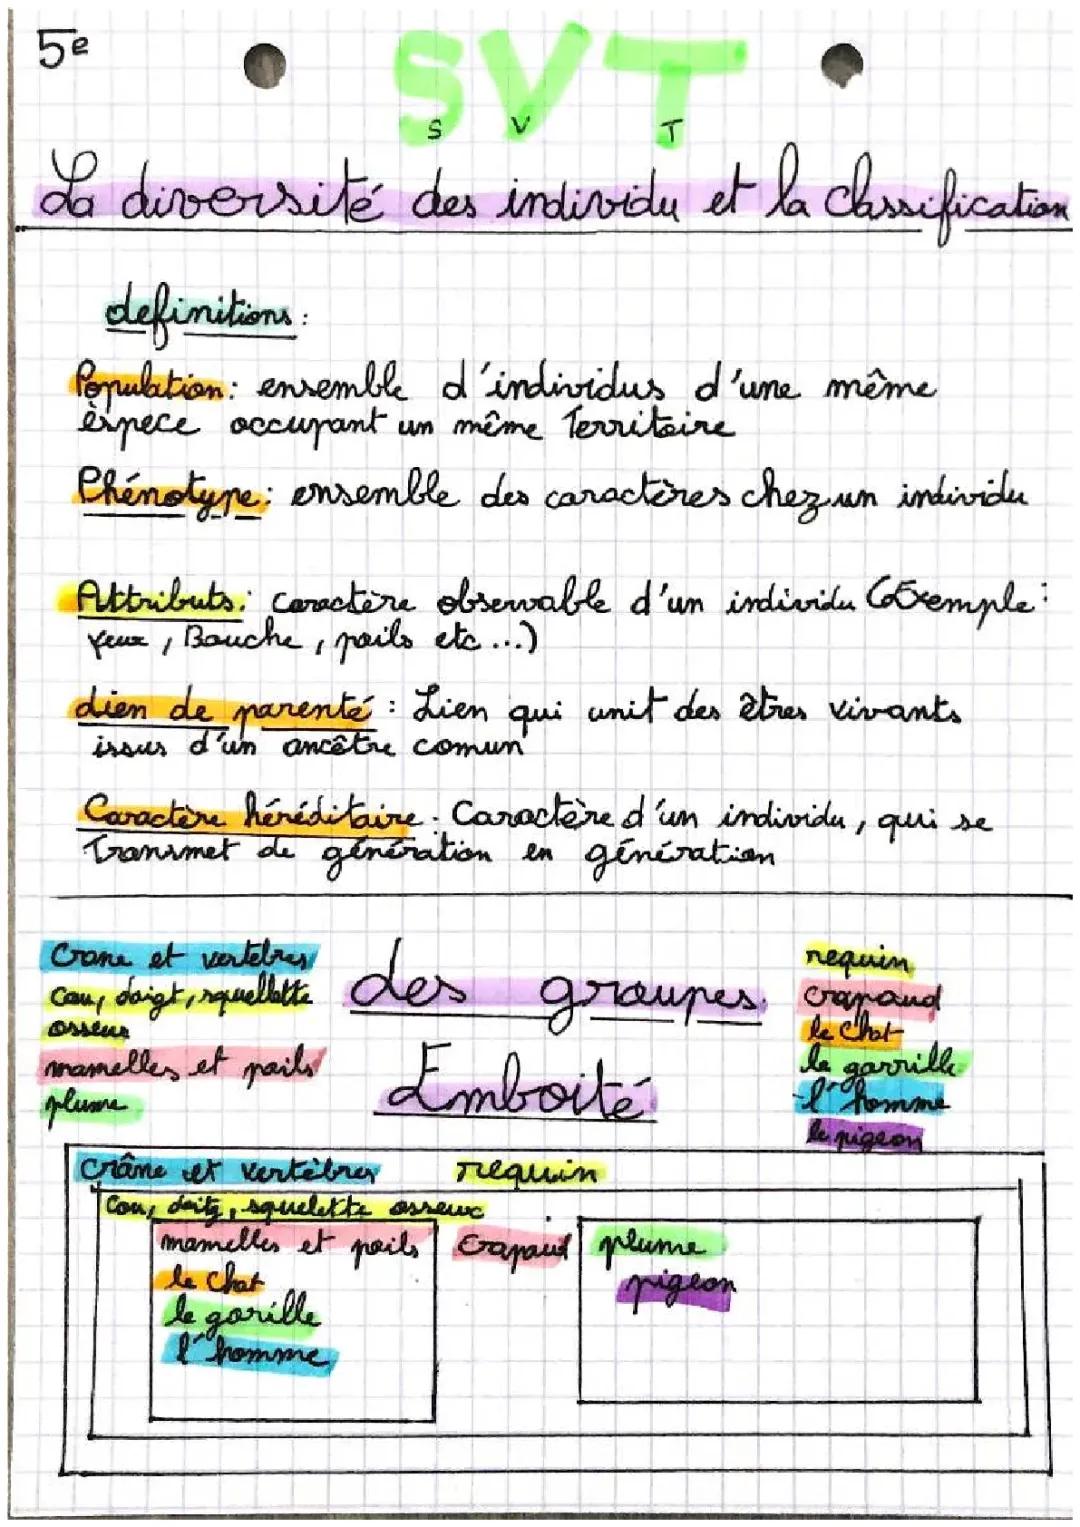 5e
SVT
S V T
La diversité des individu et la classification
definitions :
Population : ensemble d'individus d'une même
èspece occupant un même Territoire
Phénotype : ensemble des caractères chez un individu
Attributs : caractère observable d'un individu (Exemple :
yeux, Bouche, poils etc...)
Lien de parenté : Lien qui unit des êtres vivants
issus d'un ancêtre comun
Caractère héréditaire : Caractère d'un individu, qui se
Transmet de génération en génération
Crane et vertebres
Cou, doigt, squellette
osseux
mamelles et poils
plume
des groupes
Emboité
requin
crapaud
le chat
le gorrille
l'homme
le pigeon
Crâne et vertèbres requin
Cou, doitg, squelette osseux
mamelles et poils crapaud plume
le chat pigeon
le gorille
l'homme